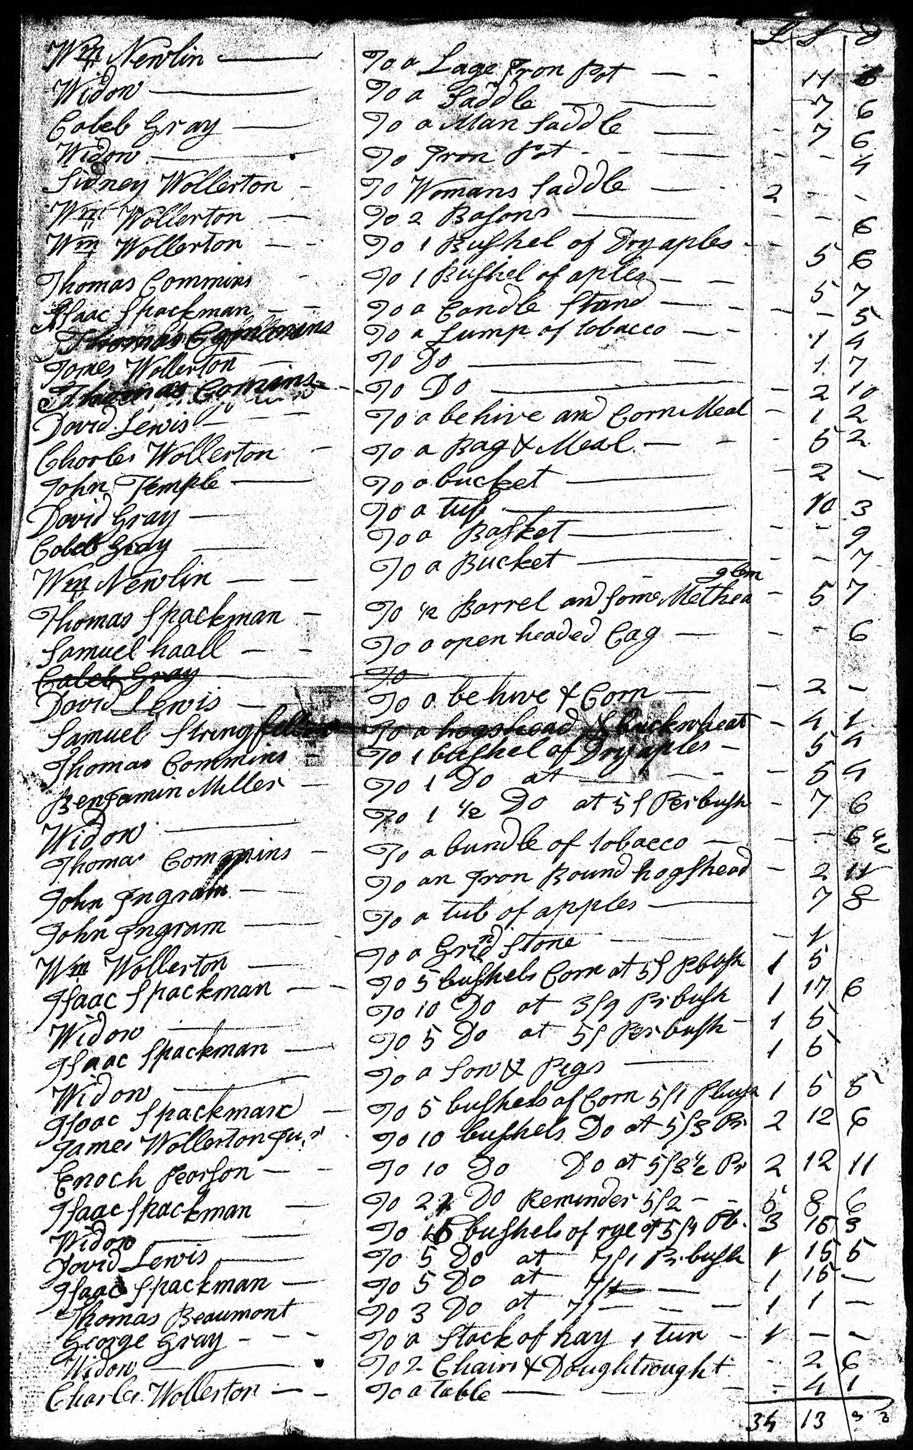 £ S d
Wm Newlin — To a Lage Iron Pot — 11 6
Widow — To a Saddle — 7 6
Caleb Gray — To a Man Saddle — 7 6
Widow — To Iron Pot - - - 4
Sidney Wollerton - To Womans Saddle — 2 - -
Wm Wollerton — To 2 Basons — - - 6
Wm Wollerton — To 1 Bushel of Dry aples - - 5 6
Thomas Commins - To 1 Bushel of aples - - 5 7
Isaac Spackman - To a Candle Stand — - - 5
Thomas Commins To a Lump of tobacco — - 1 4
James Wollerton To Do — 1 7
Thomas Comins To Do — 2 10
David Lewis — To a be hive and Corn Meal - 1 2
Charles Wollerton - To a Bag & Meal - - 5 2
John Temple — To a bucket — 2 -
David Gray — To a tub — 10 3
Caleb Gray — To a Basket — - - 9
Wm Newlin — To a Bucket — - - 7
Thomas Spackman - To ½ Barrel and Some Metheglem - 5 7
Samuel haall — To a open headed Cag — - - 6
Caleb Gray — To
David Lewis — To a be hive & Corn — - 2 -
Samuel Stringfellow To a hogshead & buckwheat - 4 1
Thomas Commins - To 1 bushel of Dry aples - 5 4
Benjamin Miller - To 1 Do at — - 5 4
Widow — To 1 ½ Do at 5/ Per bush - 7 6
Thomas Commins - To a bundle of tobacco — - - 6 ½
John Ingram — To an Iron Bound hogshead - 2 11
John Ingram — To a tub of apples — 7 8
Wm Wollerton — To a Grind Stone — - 1
Isaac Spackman - To 5 bushels Corn at 5/ P bush 1 5
Widow — To 10 Do at 3/9 Pr bush 1 17 6
Isaac Spackman - To 5 Do at 5/ Per bush - 1 5
Widow — To a Sow & Pigs — 1 5
Isaac Spackman To 5 bushels of Corn 5/1 P bush 1 5 5
James Wollerton Junr To 10 bushels Do at 5/3 Pr 2 12 6
Enoch Pearson — To 10 Do Do at 5/3½ Pr 2 12 11
Isaac Spackman To 21 Do Reminder 5/2 - - 5 8 6
Widow To 15 bushels of rye at 5/1 Pb. 3 16 3
David Lewis — To 5 Do at 7/1 Pr bush 1 15 5
Isaac Spackman — To 5 Do at 7/ — 1 15 —
Thomas Beaumont To 3 Do at 7/ - - - 1 1 —
George Gray - - - To a Stack of hay 1 tun - 1 - -
Widow — To 2 Chairs & Doughtrought - 2 6
Charles Wollerton - - To a table — - 4 1
34 13 3 ½